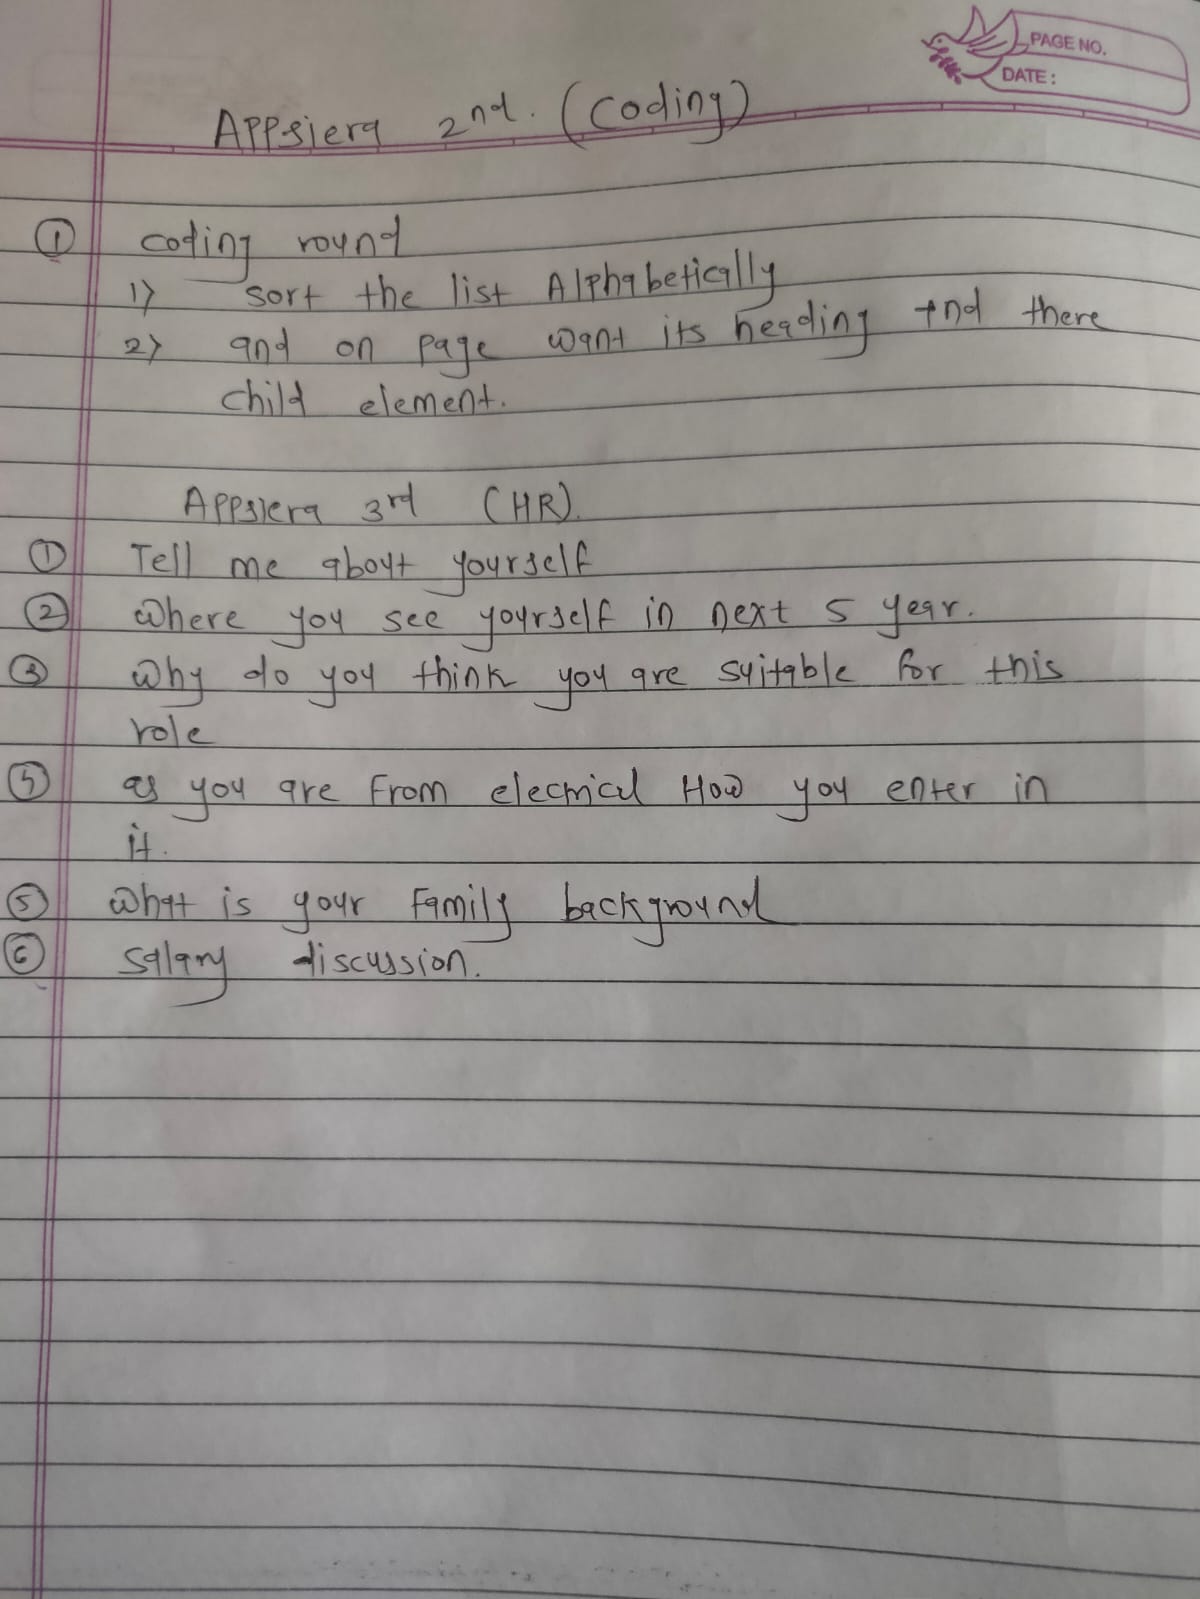 PAGE NO.
DATE:
Appsiera 2nd. (Coding)
① coding round
1) sort the list Alphabetically
2) and on page want its heading and there
child element.
Appsiera 3rd (HR).
① Tell me about yourself
② Where you see yourself in next 5 year.
③ Why do you think you are suitable for this
role
as you are From elecrical How you enter in
it.
⑤ What is your Family background
⑥ Salary discussion.